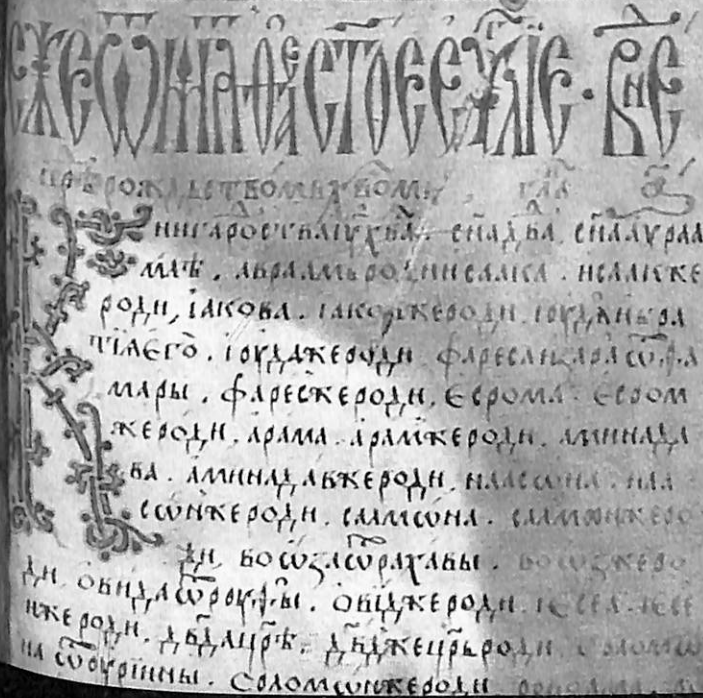 еже ѿ матѳеа ст҃ое еѵⷢ҇лїе · в нⷣе
прⷣе рожⷣьствомъ хв҃омъ , гла҃ а҃
Книга родства і҆ӱ хв҃а . сн҃а дв҃да , сн҃а авраа
млѣ . авраамъ роди исаака . исаакже
роди , іакова . іаковже роди . іюдꙋ и бра
тїѧ єго̀ . іюдаже роди фареса и зара ѿ ѳа
мары . фаресже роди , єсрома . єсром
же роди . арама . арамже роди . аминада
ва . аминадавже роди , наасѡна . наа
сѡнже роди , салмѡна . салмѡнже ро
ди , воѡза ѿ рахавы . воѡзже ро
ди ѻвида ѿ рꙋѳы . ѻвидже роди . іесеа . іесе
иже роди , дв҃да цр҃ѣ . дв҃дже цр҃ь роди соломѡ
на ѿ ᲂурїины . соломѡнже роди